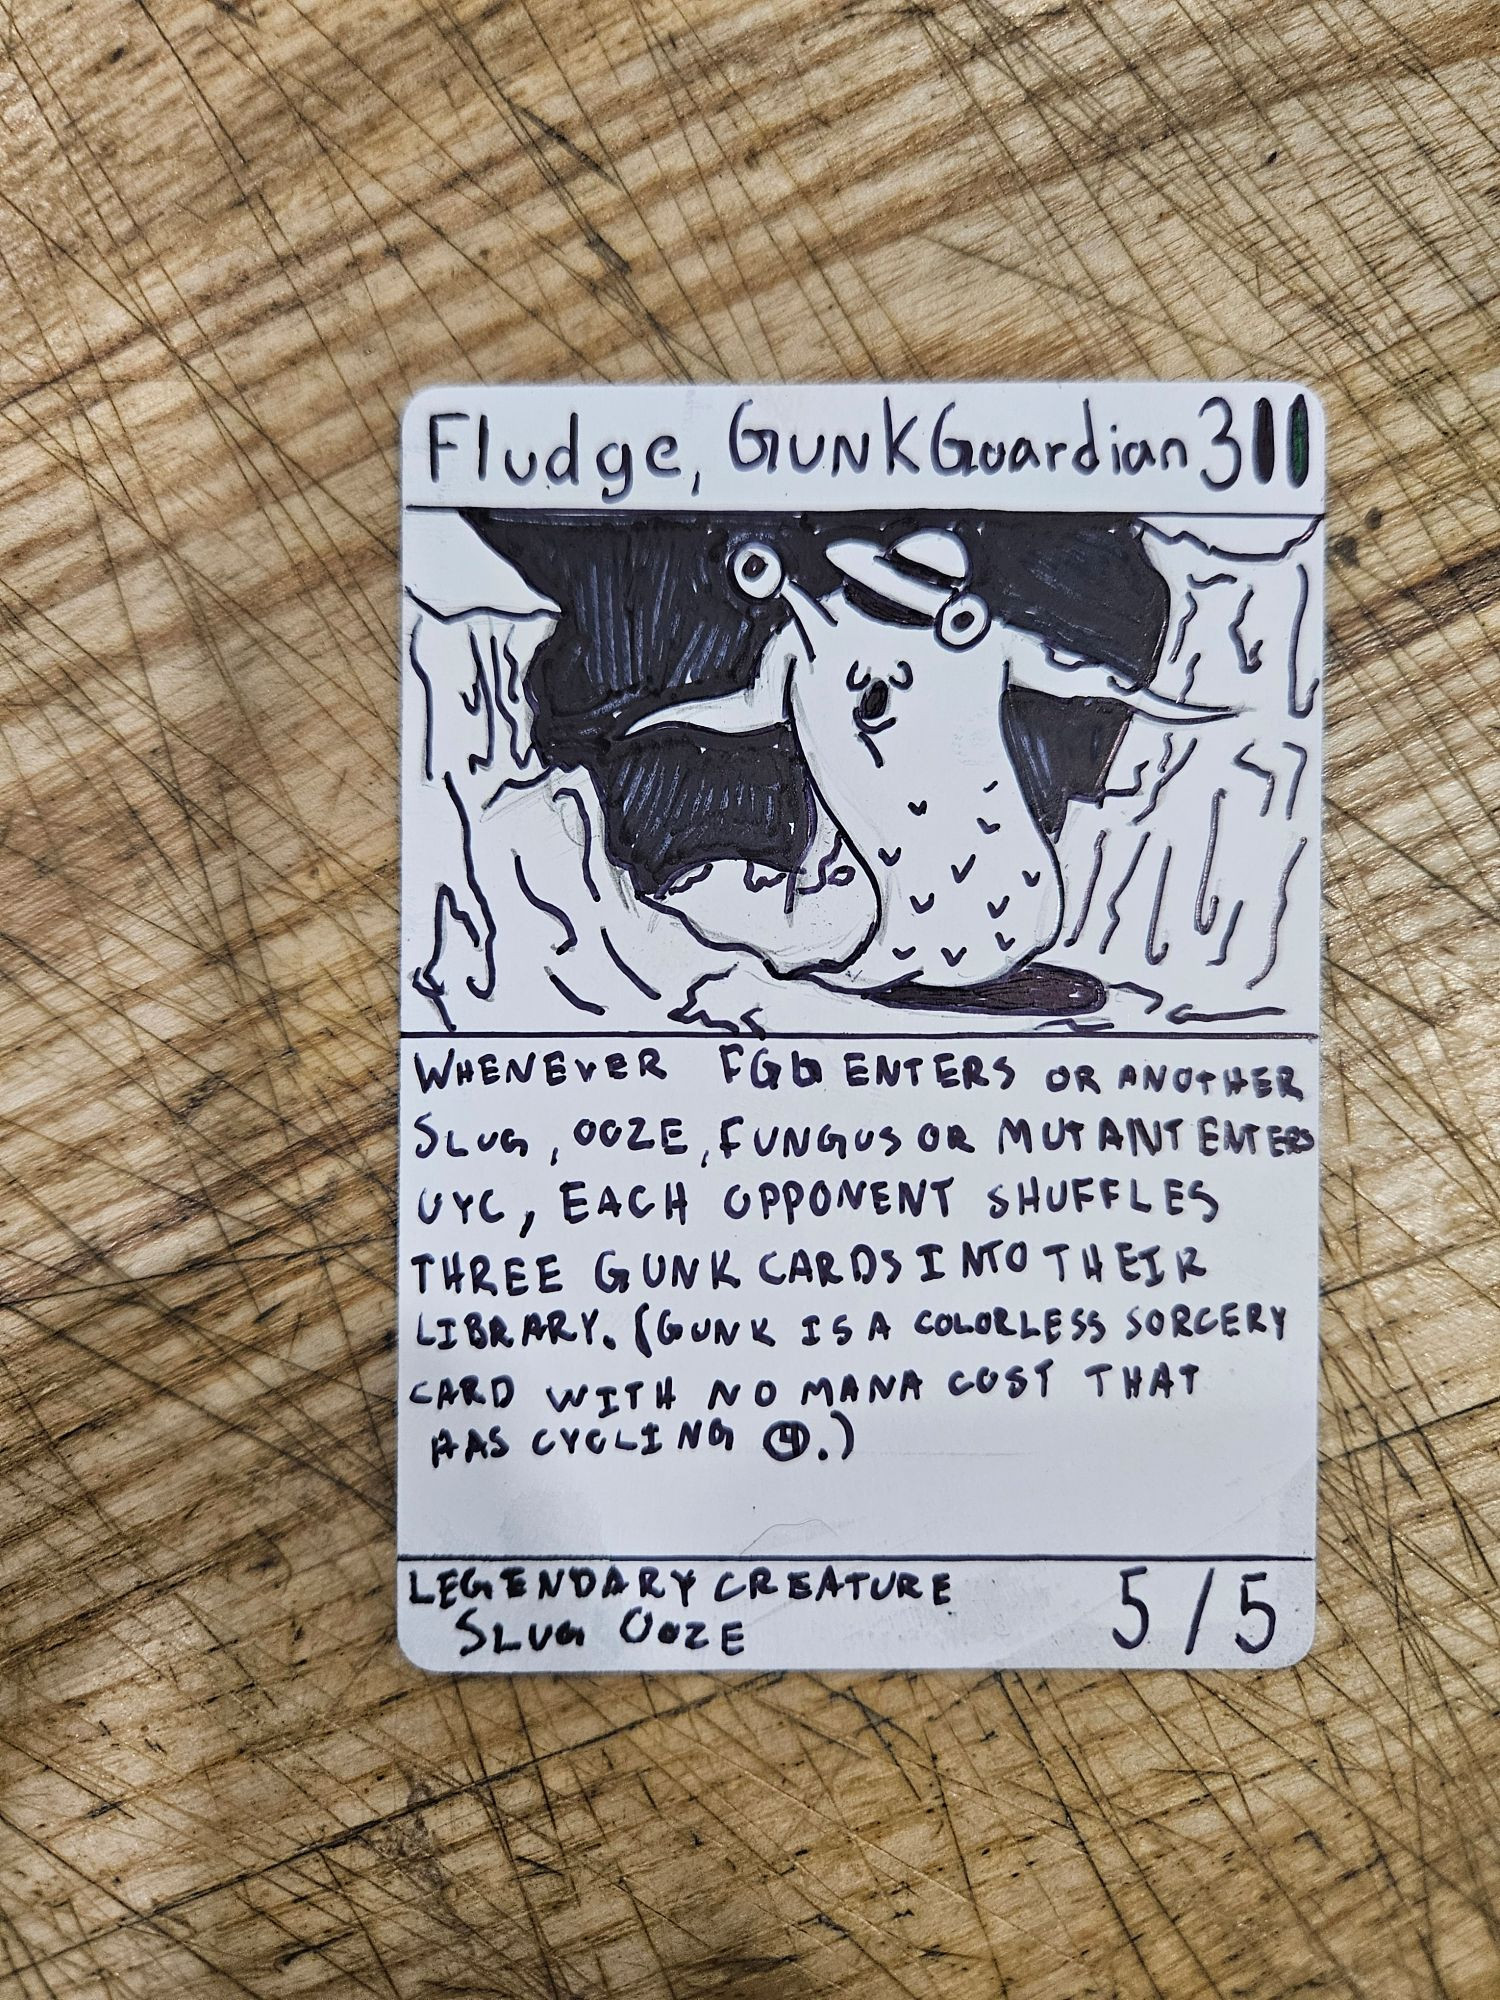 Fludge, GUNK Guardian 3
WHENEVER FGG ENTERS OR ANOTHER
SLUG, OOZE, FUNGUS OR MUTANT ENTERS
UYC, EACH OPPONENT SHUFFLES
THREE GUNK CARDS INTO THEIR
LIBRARY. (GUNK IS A COLORLESS SORCERY
CARD WITH NO MANA COST THAT
HAS CYCLING 4.)
LEGENDARY CREATURE
SLUG OOZE
5/5